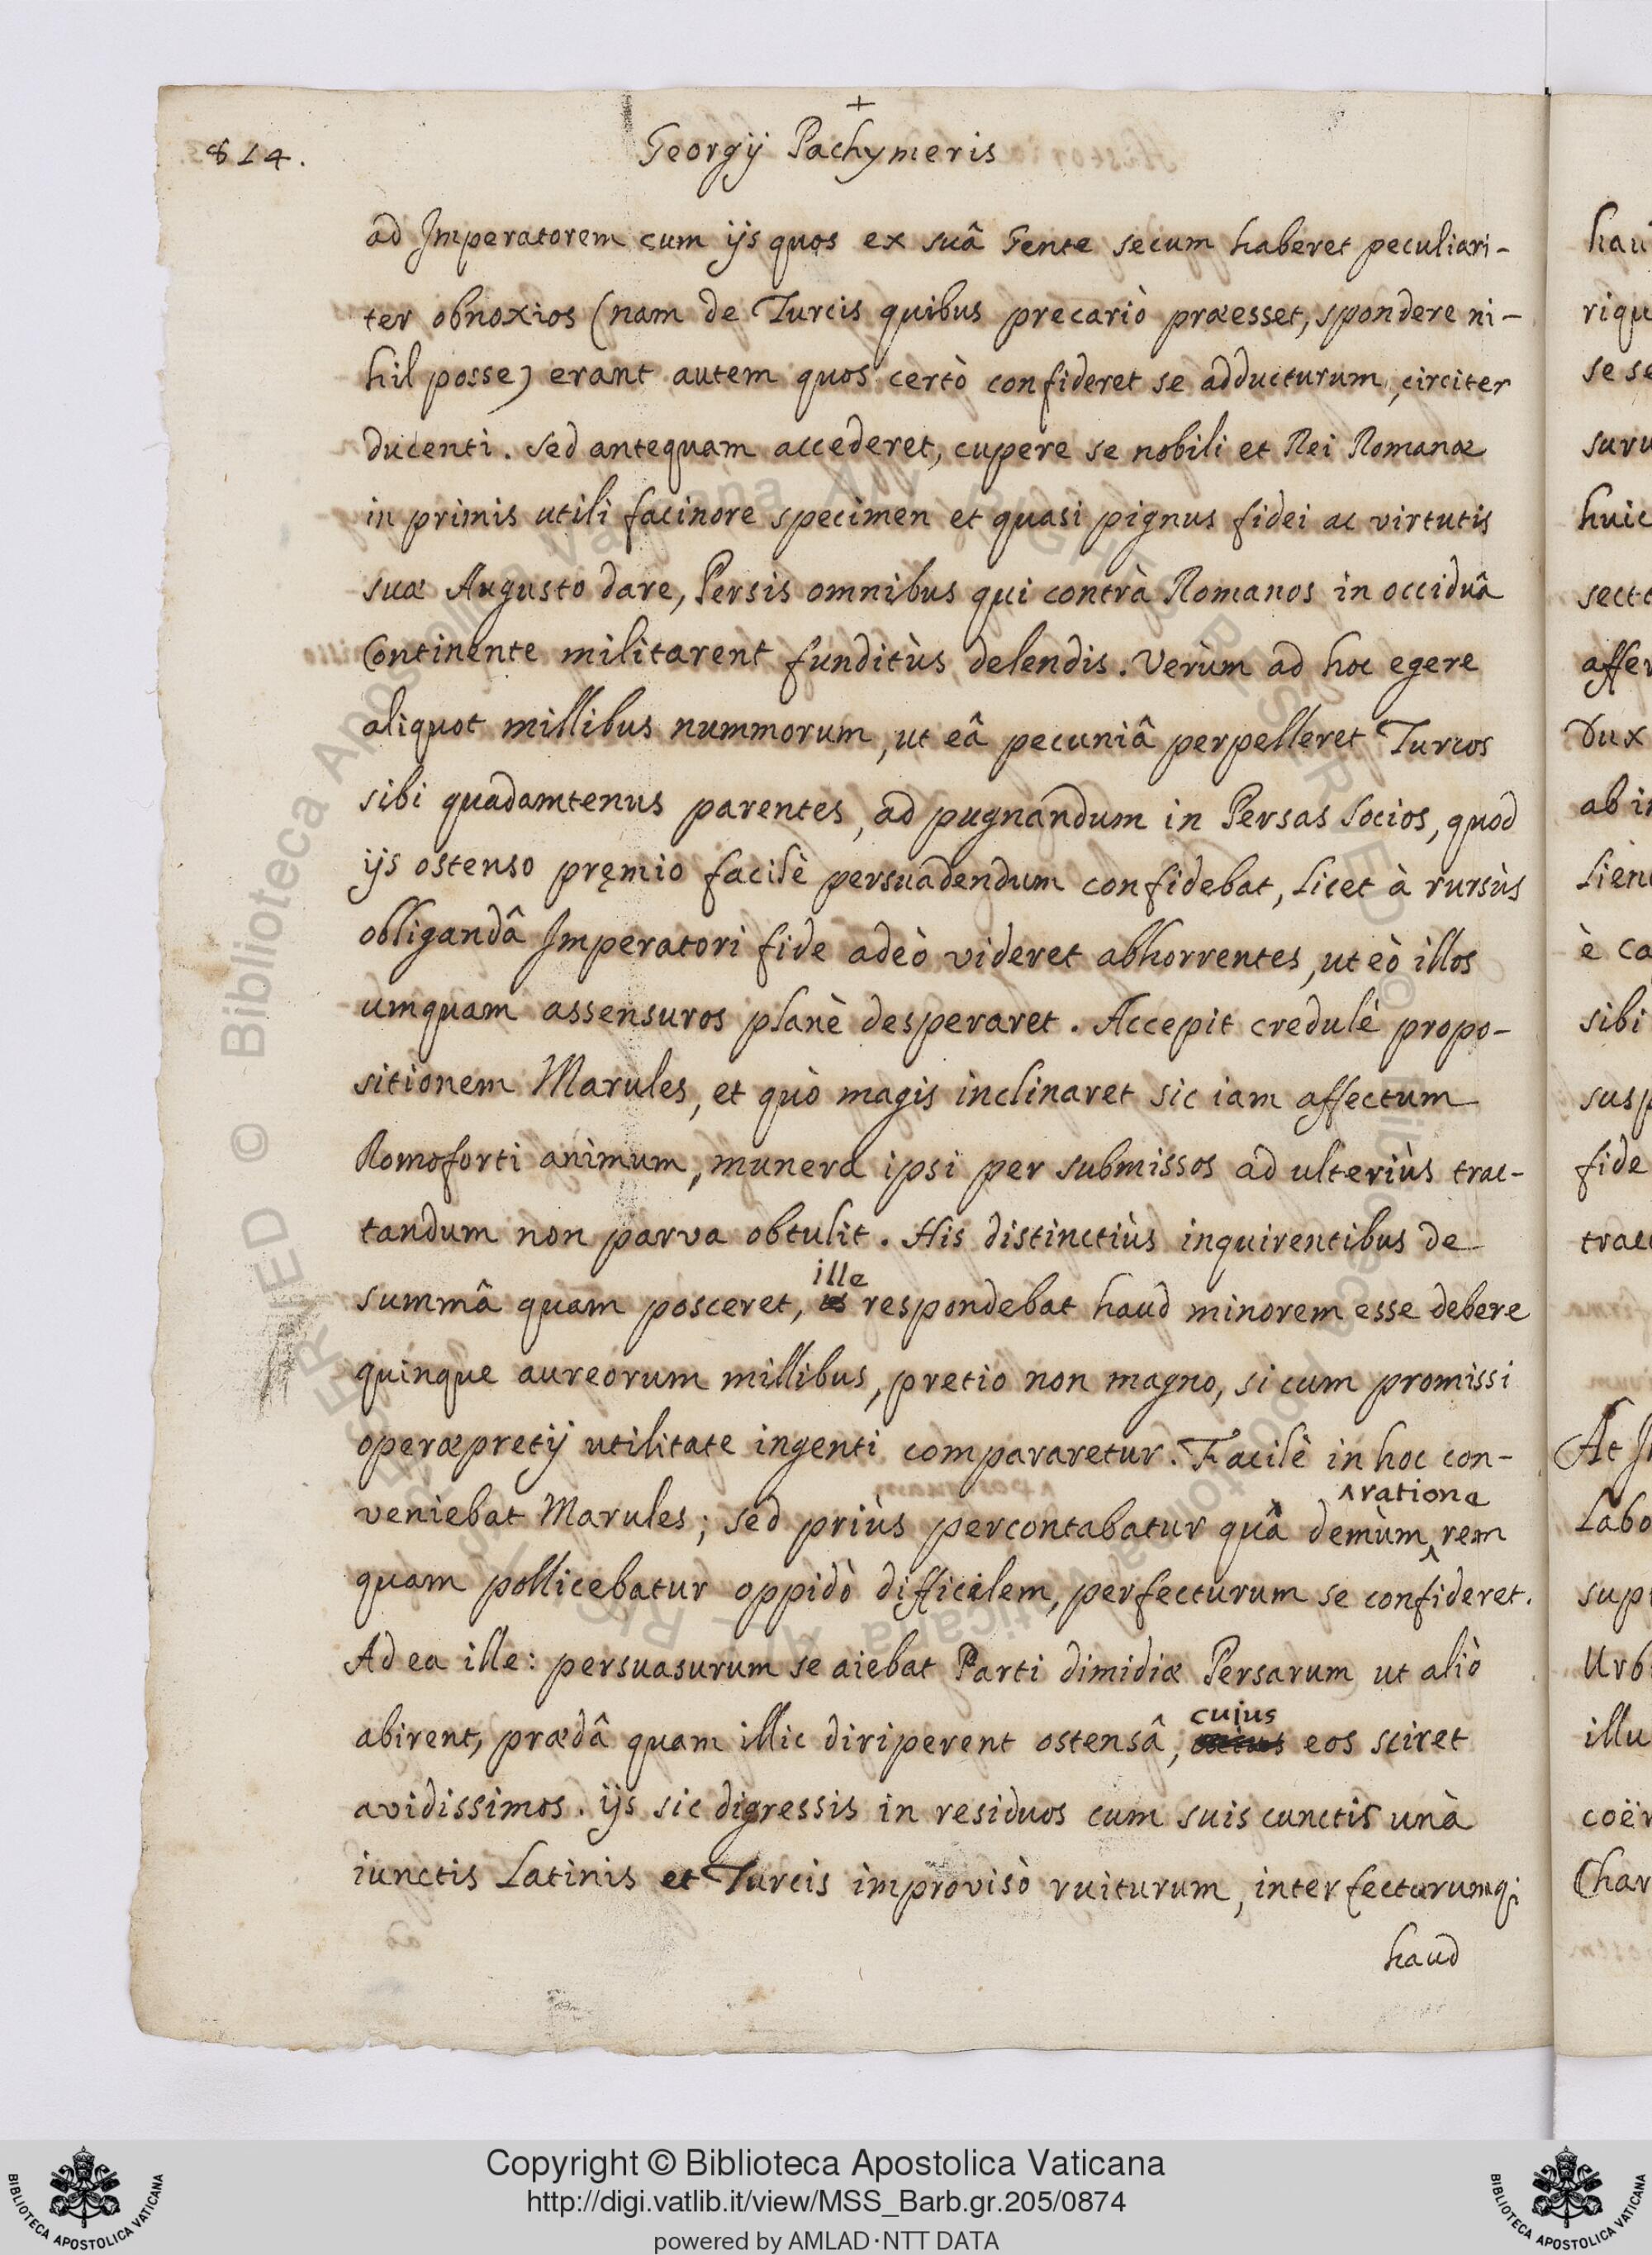 +
814.
Georgij Pachymeris
ad Imperatorem cum ijs quos ex suâ Gente secum haberet peculiari-
ter obnoxios (nam de Turcis quibus precariò præesset, spondere ni-
hil posse) erant autem quos certò confideret se adducturum, circiter
ducenti. Sed antequam accederet, cupere se nobili et Rei Romanæ
in primis utili facinore specimen et quasi pignus fidei ac virtutis
suæ Augusto dare, Persis omnibus qui contrà Romanos in occiduâ
Continente militarent funditùs delendis. Verùm ad hoc egere
aliquot millibus nummorum, ut eâ pecuniâ perpelleret Turcos
sibi quadamtenus parentes, ad pugnandum in Persas Socios, quod
ijs ostenso pręmio facilè persuadendum confidebat, licet à rursùs
obligandâ Imperatori fide adeò videret abhorrentes, ut eò illos
umquam assensuros planè desperaret. Accepit credulè propo-
sitionem Marules, et quò magis inclinaret sic iam affectum
Romoforti animum, munera ipsi per submissos ad ulteriùs trac-
tandum non parva obtulit. His distinctiùs inquirentibus de
ille
summâ quam posceret, is respondebat haud minorem esse debere
quinque aureorum millibus, pretio non magno, si cum promissi
operæpretij utilitate ingenti compararetur. Facilè in hoc con-
ratione
veniebat Marules; sed priùs percontabatur quâ demùm rem
quam pollicebatur oppidò difficilem, perfecturum se confideret.
Ad ea ille: persuasurum se aiebat Parti dimidiæ Persarum ut aliò
cujus
abirent, prædâ quam illic diriperent ostensâ, eos sciret
avidissimos. ijs sic digressis in residuos cum suis cunctis unà
iunctis Latinis et Turcis improvisò ruiturum, interfecturumq;
haud
hau
riqu
se se
suru
huic
secto
affer
Dux
ab in
lien
è ca
sibi
susp
fide
trac
At I
Labo
sup
Urb
illu
coër
Char
© Biblioteca Apostolica Vaticana
Copyright © Biblioteca Apostolica Vaticana
http://digi.vatlib.it/view/MSS_Barb.gr.205/0874
powered by AMLAD·NTT DATA
BIBLIOTECA APOSTOLICA VATICANA
BIBLIOTECA APOSTOLICA VATICANA